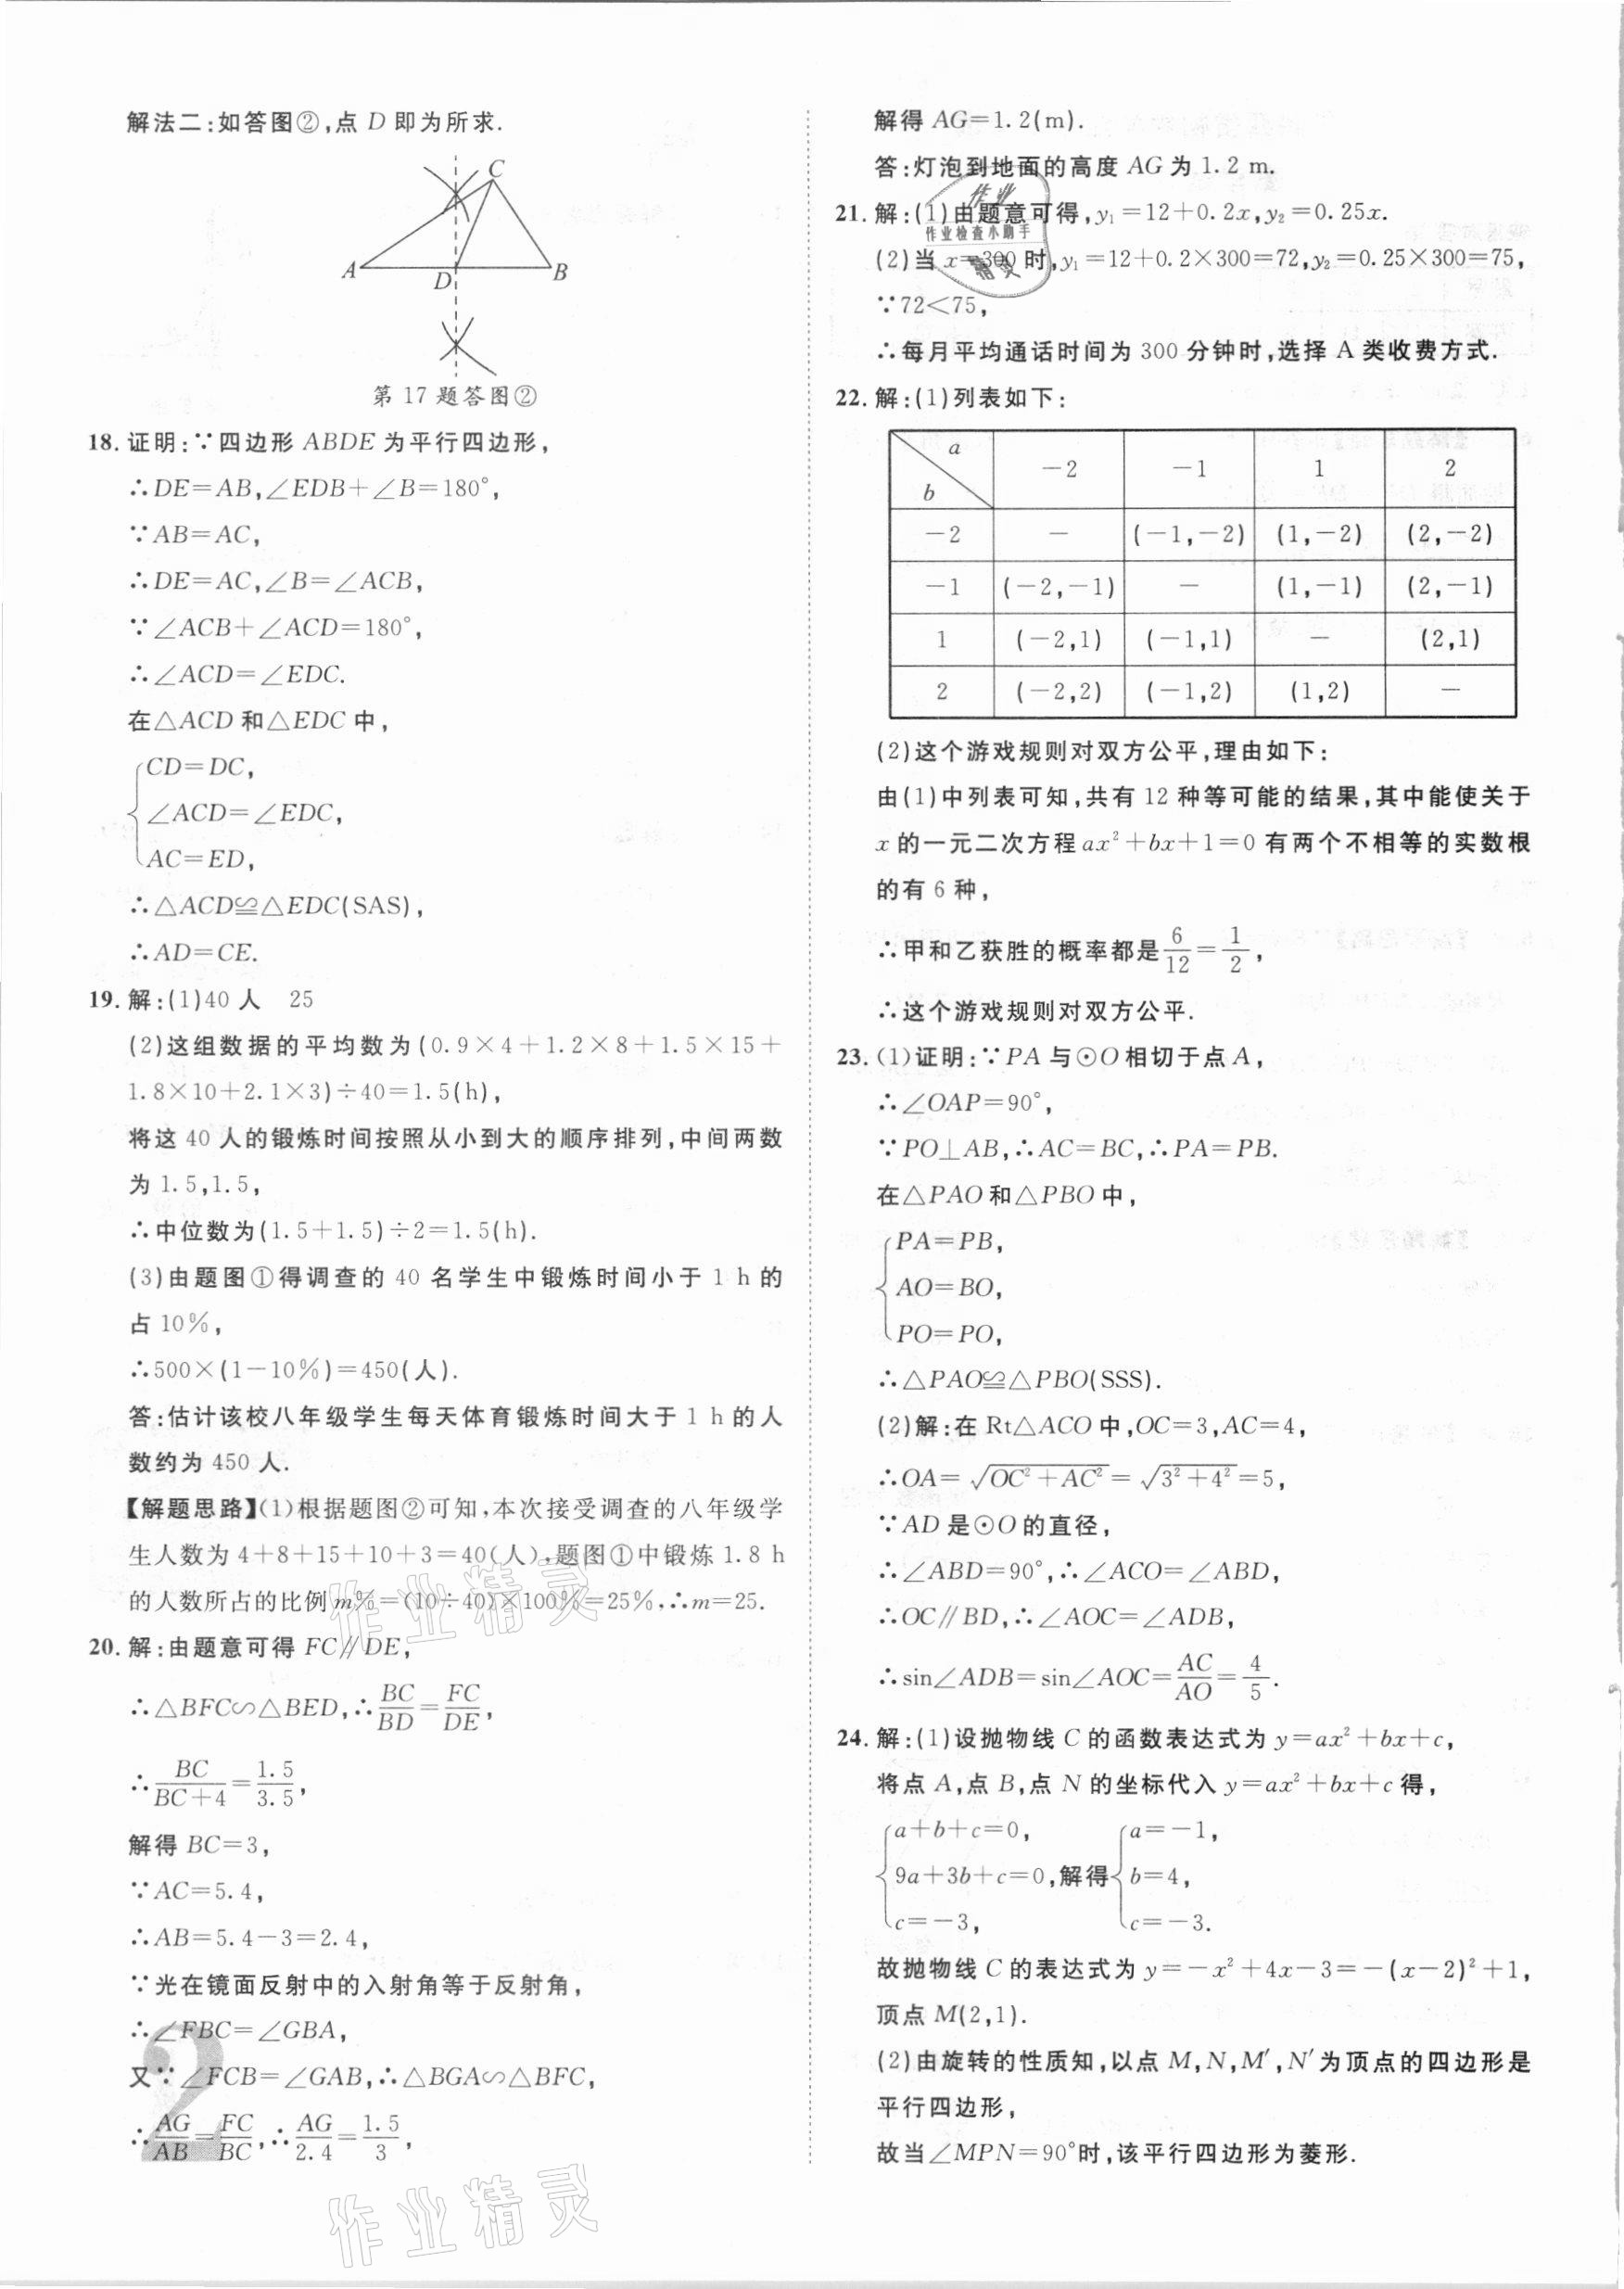 解法二:如答图②,点 D 即为所求.
C
A
D
B
第 17 题答图②
18. 证明:∵四边形 ABDE 为平行四边形,
∴DE=AB,∠EDB+∠B=180°,
∵AB=AC,
∴DE=AC,∠B=∠ACB,
∵∠ACB+∠ACD=180°,
∴∠ACD=∠EDC.
在△ACD 和△EDC 中,
CD=DC,
∠ACD=∠EDC,
AC=ED,
∴△ACD≌△EDC(SAS),
∴AD=CE.
19. 解:(1)40 人 25
(2)这组数据的平均数为(0.9×4+1.2×8+1.5×15+
1.8×10+2.1×3)÷40=1.5(h),
将这 40 人的锻炼时间按照从小到大的顺序排列,中间两数
为 1.5,1.5,
∴中位数为(1.5+1.5)÷2=1.5(h).
(3)由题图①得调查的 40 名学生中锻炼时间小于 1 h 的
占 10%,
∴500×(1-10%)=450(人).
答:估计该校八年级学生每天体育锻炼时间大于 1 h 的人
数约为 450 人.
【解题思路】(1)根据题图②可知,本次接受调查的八年级学
生人数为 4+8+15+10+3=40(人),题图①中锻炼 1.8 h
的人数所占的比例 m%=(10÷40)×100%=25%,∴m=25.
20. 解:由题意可得 FC∥DE,
∴△BFC∽△BED,∴BC/BD=FC/DE,
∴BC/(BC+4)=1.5/3.5,
解得 BC=3,
∵AC=5.4,
∴AB=5.4-3=2.4,
∵光在镜面反射中的入射角等于反射角,
∴∠FBC=∠GBA,
又∵∠FCB=∠GAB,∴△BGA∽△BFC,
∴AG/AB=FC/BC,∴AG/2.4=1.5/3,
2
作业精灵
作业精灵
解得 AG=1.2(m).
答:灯泡到地面的高度 AG 为 1.2 m.
作业
作业检查小助手
精灵
21. 解:(1)由题意可得,y₁=12+0.2x,y₂=0.25x.
(2)当 x=300 时,y₁=12+0.2×300=72,y₂=0.25×300=75,
∵72<75,
∴每月平均通话时间为 300 分钟时,选择 A 类收费方式.
22. 解:(1)列表如下:
a b -2 -1 1 2
-2 - (-1,-2) (1,-2) (2,-2)
-1 (-2,-1) - (1,-1) (2,-1)
1 (-2,1) (-1,1) - (2,1)
2 (-2,2) (-1,2) (1,2) -
(2)这个游戏规则对双方公平,理由如下:
由(1)中列表可知,共有 12 种等可能的结果,其中能使关于
x 的一元二次方程 ax²+bx+1=0 有两个不相等的实数根
的有 6 种,
∴甲和乙获胜的概率都是6/12=1/2,
∴这个游戏规则对双方公平.
23. (1)证明:∵PA 与⊙O 相切于点 A,
∴∠OAP=90°,
∵PO⊥AB,∴AC=BC,∴PA=PB.
在△PAO 和△PBO 中,
PA=PB,
AO=BO,
PO=PO,
∴△PAO≌△PBO(SSS).
(2)解:在 Rt△ACO 中,OC=3,AC=4,
∴OA=√(OC²+AC²)=√(3²+4²)=5,
∵AD 是⊙O 的直径,
∴∠ABD=90°,∴∠ACO=∠ABD,
∴OC∥BD,∴∠AOC=∠ADB,
∴sin∠ADB=sin∠AOC=AC/AO=4/5.
24. 解:(1)设抛物线 C 的函数表达式为 y=ax²+bx+c,
将点 A,点 B,点 N 的坐标代入 y=ax²+bx+c 得,
a+b+c=0, a=-1,
9a+3b+c=0,解得 b=4,
c=-3, c=-3.
故抛物线 C 的表达式为 y=-x²+4x-3=-(x-2)²+1,
顶点 M(2,1).
(2)由旋转的性质知,以点 M,N,M′,N′为顶点的四边形是
平行四边形,
故当∠MPN=90°时,该平行四边形为菱形.